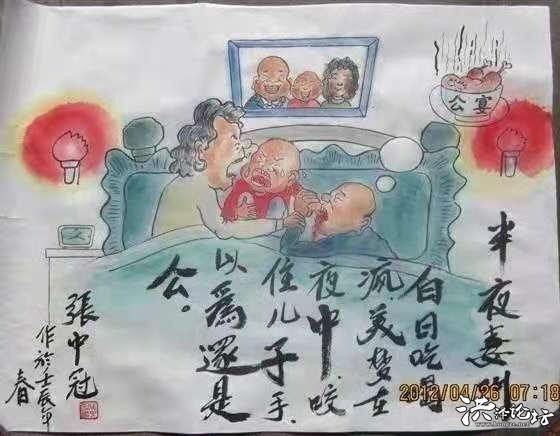 公宴
半夜妻叫
白日吃喝
疯，美梦在
夜中。咬
住儿子手
以為還是
公。
張中冠
作於壬辰年
春
2012/04/26 07:18
洪泽论坛